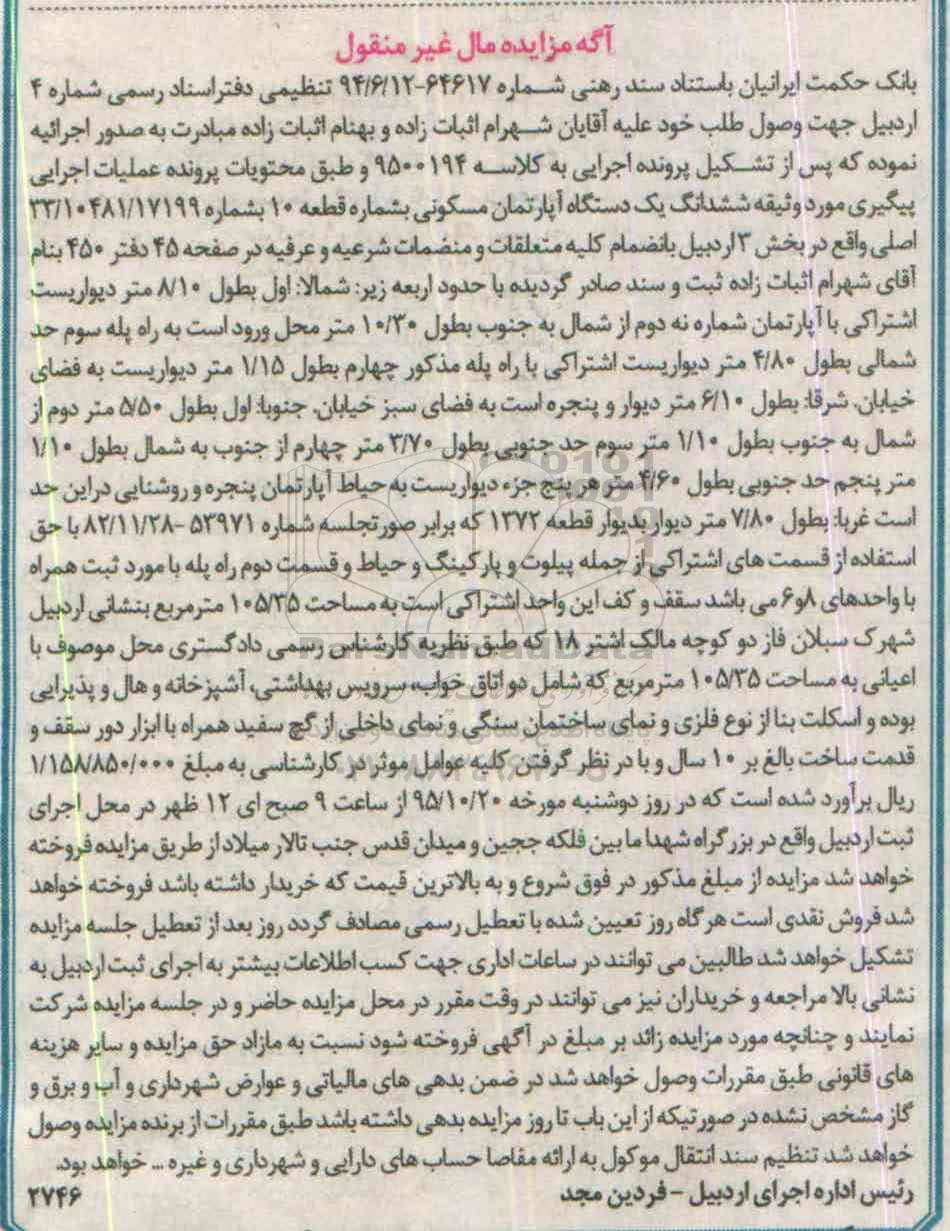 آگه مزایده مال غیر منقول
بانک حکمت ایرانیان باستناد سند رهنی شماره ۶۴۶۱۷-۹۴/۶/۱۲ تنظیمی دفتراسناد رسمی شماره ۴
اردبیل جهت وصول طلب خود علیه آقایان شهرام اثبات زاده و بهنام اثبات زاده مبادرت به صدور اجرائیه
نموده که پس از تشکیل پرونده اجرایی به کلاسه ۹۵۰۰۱۹۴ و طبق محتویات پرونده عملیات اجرایی
پیگیری مورد وثیقه ششدانگ یک دستگاه آپارتمان مسکونی بشماره قطعه ۱۰ بشماره ۳۳/۱۰۴۸۱/۱۷۱۹۹
اصلی واقع در بخش ۳ اردبیل بانضمام کلیه متعلقات و منضمات شرعیه و عرفیه در صفحه ۴۵ دفتر ۴۵۰ بنام
آقای شهرام اثبات زاده ثبت و سند صادر گردیده با حدود اربعه زیر: شمالا: اول بطول ۸/۱۰ متر دیواریست
اشتراکی با آپارتمان شماره نه دوم از شمال به جنوب بطول ۱۰/۳۰ متر محل ورود است به راه پله سوم حد
شمالی بطول ۴/۸۰ متر دیواریست اشتراکی با راه پله مذکور چهارم بطول ۱/۱۵ متر دیواریست به فضای
خیابان. شرقا: بطول ۶/۱۰ متر دیوار و پنجره است به فضای سبز خیابان. جنوبا: اول بطول ۵/۵۰ متر دوم از
شمال به جنوب بطول ۱/۱۰ متر سوم حد جنوبی بطول ۳/۷۰ متر چهارم از جنوب به شمال بطول ۱/۱۰
متر پنجم حد جنوبی بطول ۴/۶۰ متر هر پنج جزء دیواریست به حیاط آپارتمان پنجره و روشنایی دراین حد
است غربا: بطول ۷/۸۰ متر دیوار بدیوار قطعه ۱۳۷۲ که برابر صورتجلسه شماره ۵۳۹۷۱ -۸۲/۱۱/۲۸ با حق
استفاده از قسمت های اشتراکی از جمله پیلوت و پارکینگ و حیاط و قسمت دوم راه پله با مورد ثبت همراه
با واحدهای ۸و۶ می باشد سقف و کف این واحد اشتراکی است به مساحت ۱۰۵/۳۵ مترمربع بنشانی اردبیل
شهرک سبلان فاز دو کوچه مالک اشتر ۱۸ که طبق نظریه کارشناس رسمی دادگستری محل موصوف با
اعیانی به مساحت ۱۰۵/۳۵ مترمربع که شامل دو اتاق خواب، سرویس بهداشتی، آشپزخانه و هال و پذیرایی
بوده و اسکلت بنا از نوع فلزی و نمای ساختمان سنگی و نمای داخلی از گچ سفید همراه با ابزار دور سقف و
قدمت ساخت بالغ بر ۱۰ سال و با در نظر گرفتن کلیه عوامل موثر در کارشناسی به مبلغ ۱/۱۵۸/۸۵۰/۰۰۰
ریال برآورد شده است که در روز دوشنبه مورخه ۹۵/۱۰/۲۰ از ساعت ۹ صبح ای ۱۲ ظهر در محل اجرای
ثبت اردبیل واقع در بزرگراه شهدا ما بین فلکه ججین و میدان قدس جنب تالار میلاد از طریق مزایده فروخته
خواهد شد مزایده از مبلغ مذکور در فوق شروع و به بالاترین قیمت که خریدار داشته باشد فروخته خواهد
شد فروش نقدی است هرگاه روز تعیین شده با تعطیل رسمی مصادف گردد روز بعد از تعطیل جلسه مزایده
تشکیل خواهد شد طالبین می توانند در ساعات اداری جهت کسب اطلاعات بیشتر به اجرای ثبت اردبیل به
نشانی بالا مراجعه و خریداران نیز می توانند در وقت مقرر در محل مزایده حاضر و در جلسه مزایده شرکت
نمایند و چنانچه مورد مزایده زائد بر مبلغ در آگهی فروخته شود نسبت به مازاد حق مزایده و سایر هزینه
های قانونی طبق مقررات وصول خواهد شد در ضمن بدهی های مالیاتی و عوارض شهرداری و آب و برق و
گاز مشخص نشده در صورتیکه از این باب تا روز مزایده بدهی داشته باشد طبق مقررات از برنده مزایده وصول
خواهد شد تنظیم سند انتقال موکول به ارائه مفاصا حساب های دارایی و شهرداری و غیره ... خواهد بود.
رئیس اداره اجرای اردبیل - فردین مجد ۲۷۴۶